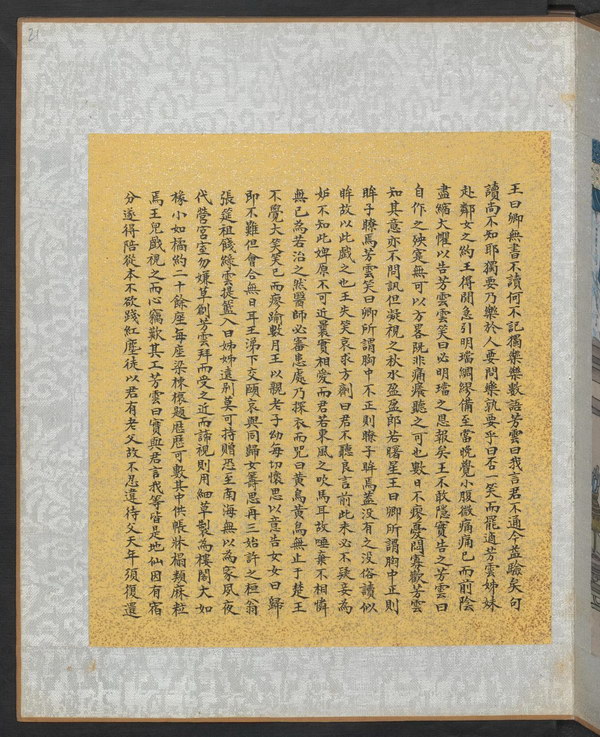 王曰卿無書不讀何不記獨樂樂數語芳雲曰我言君不通今益驗矣句
讀尚不知耶獨要乃樂於人要問樂孰要乎曰否一笑而罷適芳雲姊妹
赴鄰女之約王得間急引明璫綢繆備至當晚覺小腹微痛痛已而前陰
盡縮大懼以告芳雲雲笑曰必明璫之恩報矣王不敢隱實告之芳雲曰
自作之殃實無可以方畧既非痛癢聽之可也數日不瘳憂悶寡歡芳雲
知其意亦不問訊但凝視之秋水盈盈郎若曙星王曰卿所謂胸中正則
眸子瞭焉芳雲笑曰卿所謂胸中不正則瞭子眸焉蓋沒有之沒俗讀似
眸故以此戲之也王失笑哀求方劑曰君不聽良言前此未必不疑妾為
妒不知此婢原不可近曩實相愛而君若東風之吹馬耳故唾棄不相憐
無已為若治之然醫師必審患處乃探衣而咒曰黃鳥黃鳥無止于楚王
不覺大笑笑已而瘳踰數月王以親老子幼每切懷思以意告女女曰歸
即不難但會合無日耳王涕下交頤哀與同歸女籌思再三始許之桓翁
張筵祖餞綠雲提籃入曰姊姊遠別莫可持贈恐至南海無以為家夙夜
代營宮室勿嫌草創芳雲拜而受之近而諦視則用細草製為樓閣大如
椽小如橘約二十餘座每座梁棟榱題歷歷可數其中供帳牀榻類麻粒
焉王兒戲視之而心竊歎其工芳雲曰實與君言我等皆是地仙因有宿
分遂得陪從本不欲踐紅塵徒以君有老父故不忍違待父天年須復還
21